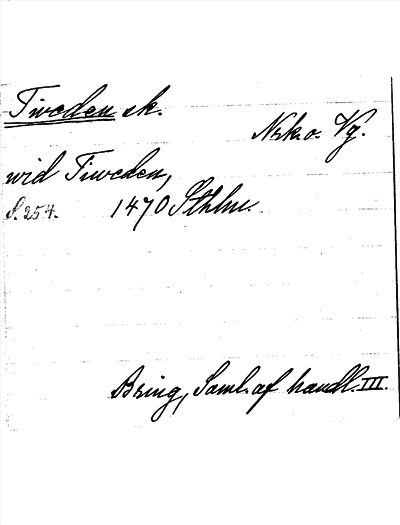 Tiveden sk.
Nrk. o. Vg.
wid Tiweden,
S. 254. 1470 Sthlm.
Bring, Saml. af handl. III.